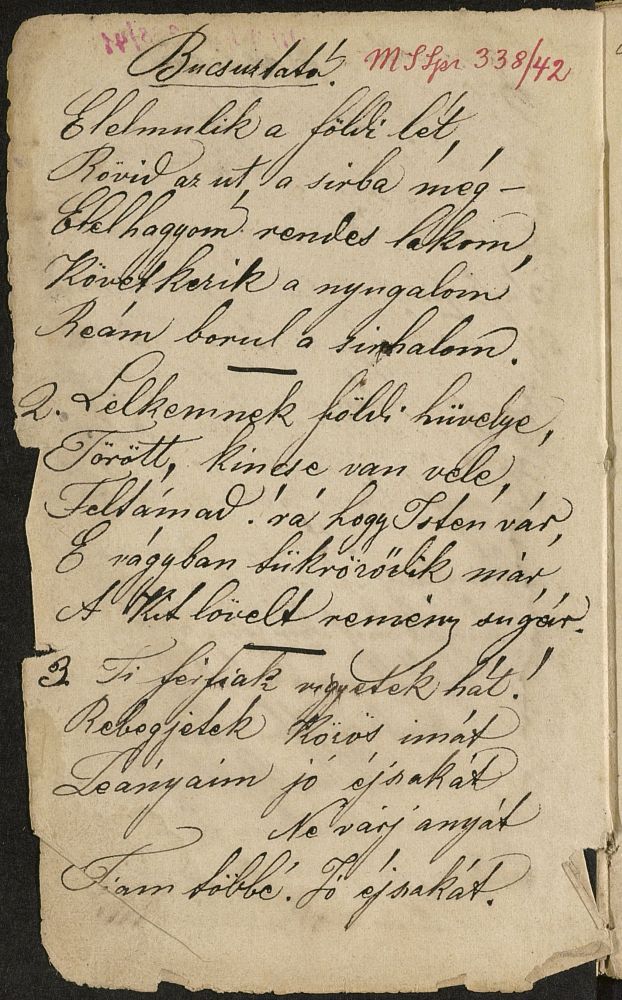 Bucsuztató!
MSSpr 338/42
Elelmulik a földi lét,
Rövid az ut, a sirba még –
Elelhagyom rendes lakom,
Következik a nyugalom
Reám borul a sirhalom.
2. Lelkemnek földi hüvelye,
Törött, kincse van vele,
Feltámad! rá hogy Isten vár,
E vágyban tükröződik már
A Kit lövelt remény sugár.
3. Ti férfiak vigyetek hát!
Rebegjetek Közös imát
Leányaim jó éjszakát
Ne várj anyát
Fiam többé. Jó éjszakát.